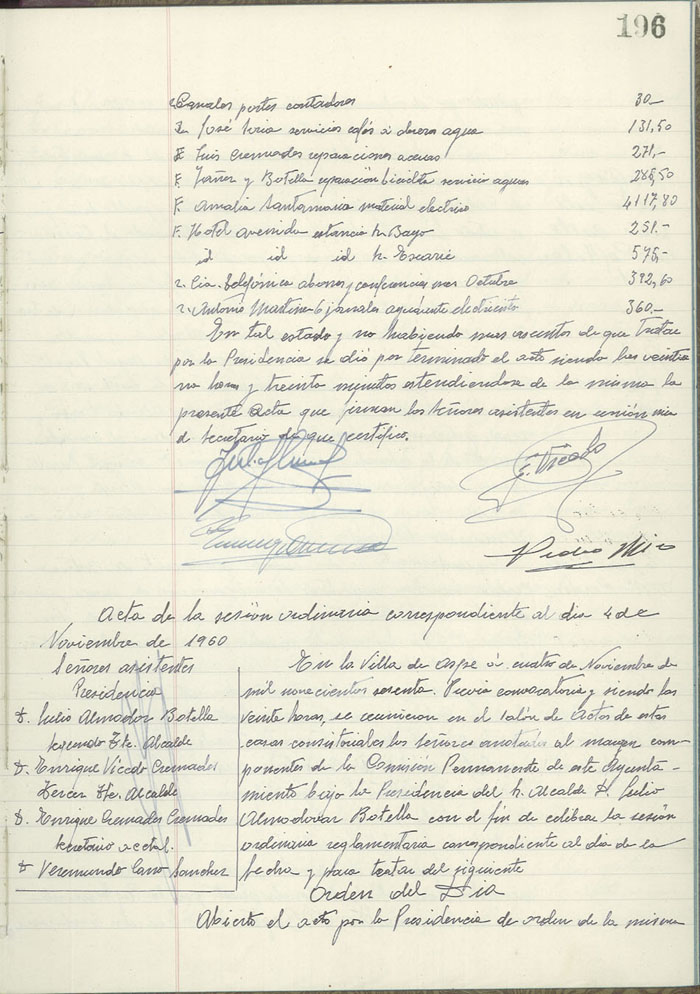 196
Canales portes contadores 30.-
José servicios cafés a obreros agua 131,50
F. Luis Cremades reparaciones aceras 271,-
F. Yañez y Botella reparación bicicleta servicio aguas 288,50
F. Amalia Santamaria material electrico 4117,80
F. Hotel avenida estancia Sr. Bayo 251.-
id id id Sr. Escarié 575,-
r. Cia. Telefónica abonos y conferencias mes Octubre 392,60
r. Antonio Martinez 6 jornales ayudante electricista 360.-
En tal estado y no habiendo mas asuntos de que tratar
por la Presidencia se dió por terminado el acto siendo las veintiu
na horas y treinta minutos extendiendose de la misma la
presente Acta que firman los Señores asistentes en union mia
el Secretario de que certifico.
E. Vicedo
Pedro Mico
Acta de la sesión ordinaria correspondiente al dia 4 de
Noviembre de 1960
Señores asistentes
Presidencia
D. Julio Almodovar Botella
segundo Tte. Alcalde
D. Enrique Vicedo Cremades
Tercer Tte. Alcalde
D. Enrique Cremades Cremades
Secretario acctal.
D. Veremundo Cano Sanchez
En la Villa de Aspe á cuatro de Noviembre de
mil novecientos sesenta. Previa convocatoria y siendo las
veinte horas, se reunieron en el Salón de Actos de estas
casas consistoriales los señores anotados al margen com-
ponentes de la Comisión Permanente de este Ayunta-
miento bajo la Presidencia del Sr. Alcalde D. Julio
Almodovar Botella con el fin de celebrar la sesión
ordinaria reglamentaria correspondiente al dia de la
fecha y para tratar del siguiente
Orden del Dia
Abierto el acto por la Presidencia de orden de la misma